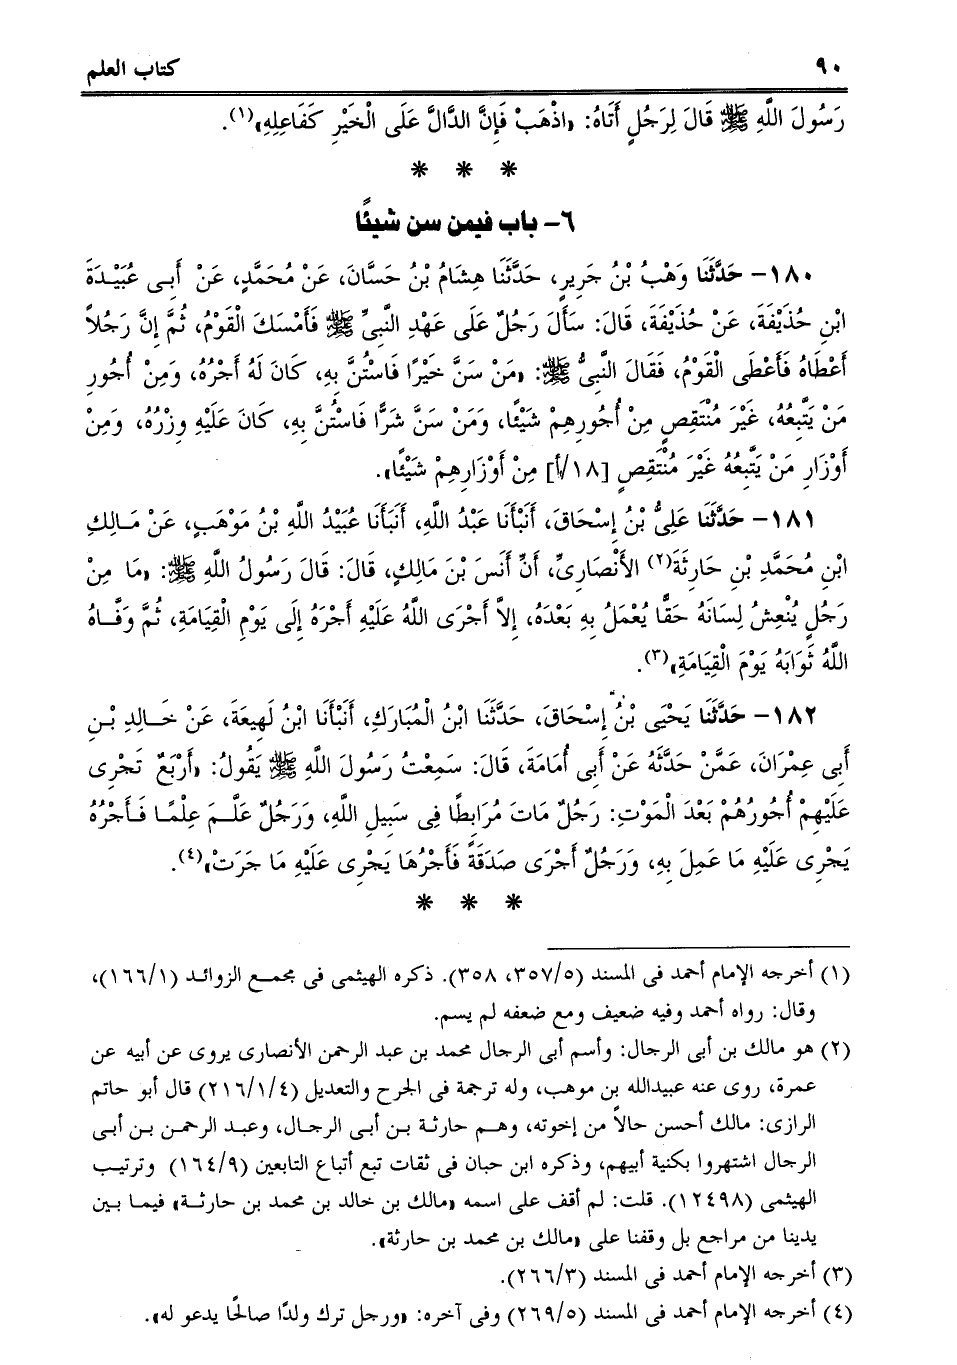 ٩٠ كتاب العلم
رَسُولَ اللَّهِ ﷺ قَالَ لِرَجُلٍ أَتَاهُ: «اذْهَبْ فَإِنَّ الدَّالَّ عَلَى الْخَيْرِ كَفَاعِلِهِ»(١).
* * *
٦- باب فيمن سن شيئًا
١٨٠- حَدَّثَنَا وَهْبُ بْنُ جَرِيرٍ، حَدَّثَنَا هِشَامُ بْنُ حَسَّانَ، عَنْ مُحَمَّدٍ، عَنْ أَبِى عُبَيْدَةَ
ابْنِ حُذَيْفَةَ، عَنْ حُذَيْفَةَ، قَالَ: سَأَلَ رَجُلٌ عَلَى عَهْدِ النَّبِىِّ ﷺ فَأَمْسَكَ الْقَوْمُ، ثُمَّ إِنَّ رَجُلاً
أَعْطَاهُ فَأَعْطَى الْقَوْمُ، فَقَالَ النَّبِىُّ ﷺ: «مَنْ سَنَّ خَيْرًا فَاسْتُنَّ بِهِ، كَانَ لَهُ أَجْرُهُ، وَمِنْ أُجُورِ
مَنْ يَتَّبِعُهُ، غَيْرَ مُنْتَقِصٍ مِنْ أُجُورِهِمْ شَيْئًا، وَمَنْ سَنَّ شَرًّا فَاسْتُنَّ بِهِ، كَانَ عَلَيْهِ وِزْرُهُ، وَمِنْ
أَوْزَارِ مَنْ يَتَّبِعُهُ غَيْرَ مُنْتَقِصٍ [١٨/أ] مِنْ أَوْزَارِهِمْ شَيْئًا».
١٨١- حَدَّثَنَا عَلِىُّ بْنُ إِسْحَاقَ، أَنْبَأَنَا عَبْدُ اللَّهِ، أَنْبَأَنَا عُبَيْدُ اللَّهِ بْنُ مَوْهَبٍ، عَنْ مَالِكِ
ابْنِ مُحَمَّدِ بْنِ حَارِثَةَ(٢) الأَنْصَارِىِّ، أَنَّ أَنَسَ بْنَ مَالِكٍ، قَالَ: قَالَ رَسُولُ اللَّهِ ﷺ: «مَا مِنْ
رَجُلٍ يُنْعِشُ لِسَانَهُ حَقًّا يُعْمَلُ بِهِ بَعْدَهُ، إِلاَّ أَجْرَى اللَّهُ عَلَيْهِ أَجْرَهُ إِلَى يَوْمِ الْقِيَامَةِ، ثُمَّ وَفَّاهُ
اللَّهُ ثَوَابَهُ يَوْمَ الْقِيَامَةِ»(٣).
١٨٢- حَدَّثَنَا يَحْيَى بْنُ إِسْحَاقَ، حَدَّثَنَا ابْنُ الْمُبَارَكِ، أَنْبَأَنَا ابْنُ لَهِيعَةَ، عَنْ خَالِدِ بْنِ
أَبِى عِمْرَانَ، عَمَّنْ حَدَّثَهُ عَنْ أَبِى أُمَامَةَ، قَالَ: سَمِعْتُ رَسُولَ اللَّهِ ﷺ يَقُولُ: «أَرْبَعٌ تَجْرِى
عَلَيْهِمْ أُجُورُهُمْ بَعْدَ الْمَوْتِ: رَجُلٌ مَاتَ مُرَابِطًا فِى سَبِيلِ اللَّهِ، وَرَجُلٌ عَلَّمَ عِلْمًا فَأَجْرُهُ
يَجْرِى عَلَيْهِ مَا عَمِلَ بِهِ، وَرَجُلٌ أَجْرَى صَدَقَةً فَأَجْرُهَا يَجْرِى عَلَيْهِ مَا جَرَتْ»(٤).
* * *
(١) أخرجه الإمام أحمد فى المسند (٣٥٧/٥، ٣٥٨). ذكره الهيثمى فى مجمع الزوائد (١٦٦/١)،
وقال: رواه أحمد وفيه ضعيف ومع ضعفه لم يسم.
(٢) هو مالك بن أبى الرجال: وأسم أبى الرجال محمد بن عبد الرحمن الأنصارى يروى عن أبيه عن
عمرة، روى عنه عبيدالله بن موهب، وله ترجمة فى الجرح والتعديل (٢١٦/١/٤) قال أبو حاتم
الرازى: مالك أحسن حالاً من إخوته، وهم حارثة بن أبى الرجال، وعبد الرحمن بن أبى
الرجال اشتهروا بكنية أبيهم، وذكره ابن حبان فى ثقات تبع أتباع التابعين (١٦٤/٩) وترتيب
الهيثمى (١٢٤٩٨). قلت: لم أقف على اسمه «مالك بن خالد بن محمد بن حارثة» فيما بين
يدينا من مراجع بل وقفنا على «مالك بن محمد بن حارثة».
(٣) أخرجه الإمام أحمد فى المسند (٢٦٦/٣).
(٤) أخرجه الإمام أحمد فى المسند (٢٦٩/٥) وفى آخره: «ورجل ترك ولدًا صالحًا يدعو له».